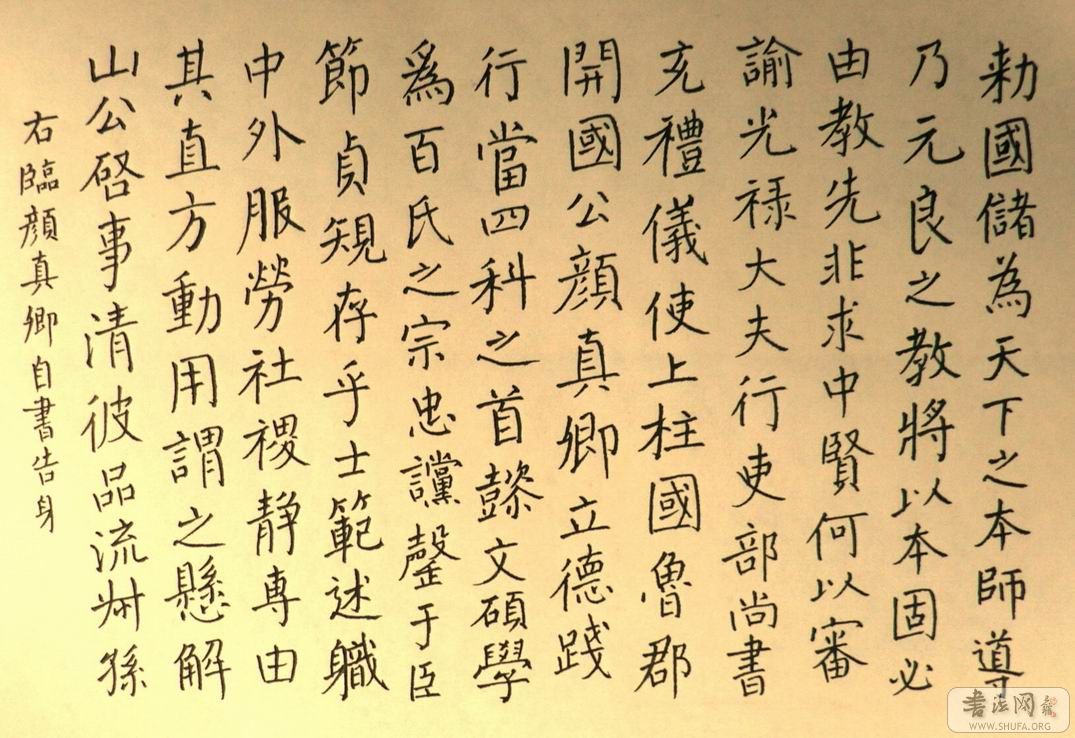 勑國儲為天下之本師導
乃元良之教將以本固必
由教先非求中賢何以審
諭光禄大夫行吏部尚書
充禮儀使上柱國魯郡
開國公顏真卿立德踐
行當四科之首懿文碩學
為百氏之宗忠讜罄于臣
節貞規存乎士範述職
中外服勞社稷静專由
其直方動用謂之懸解
山公啓事清彼品流叔孫
右臨顏真卿自書告身
書法网
WWW.SHUFA.ORG